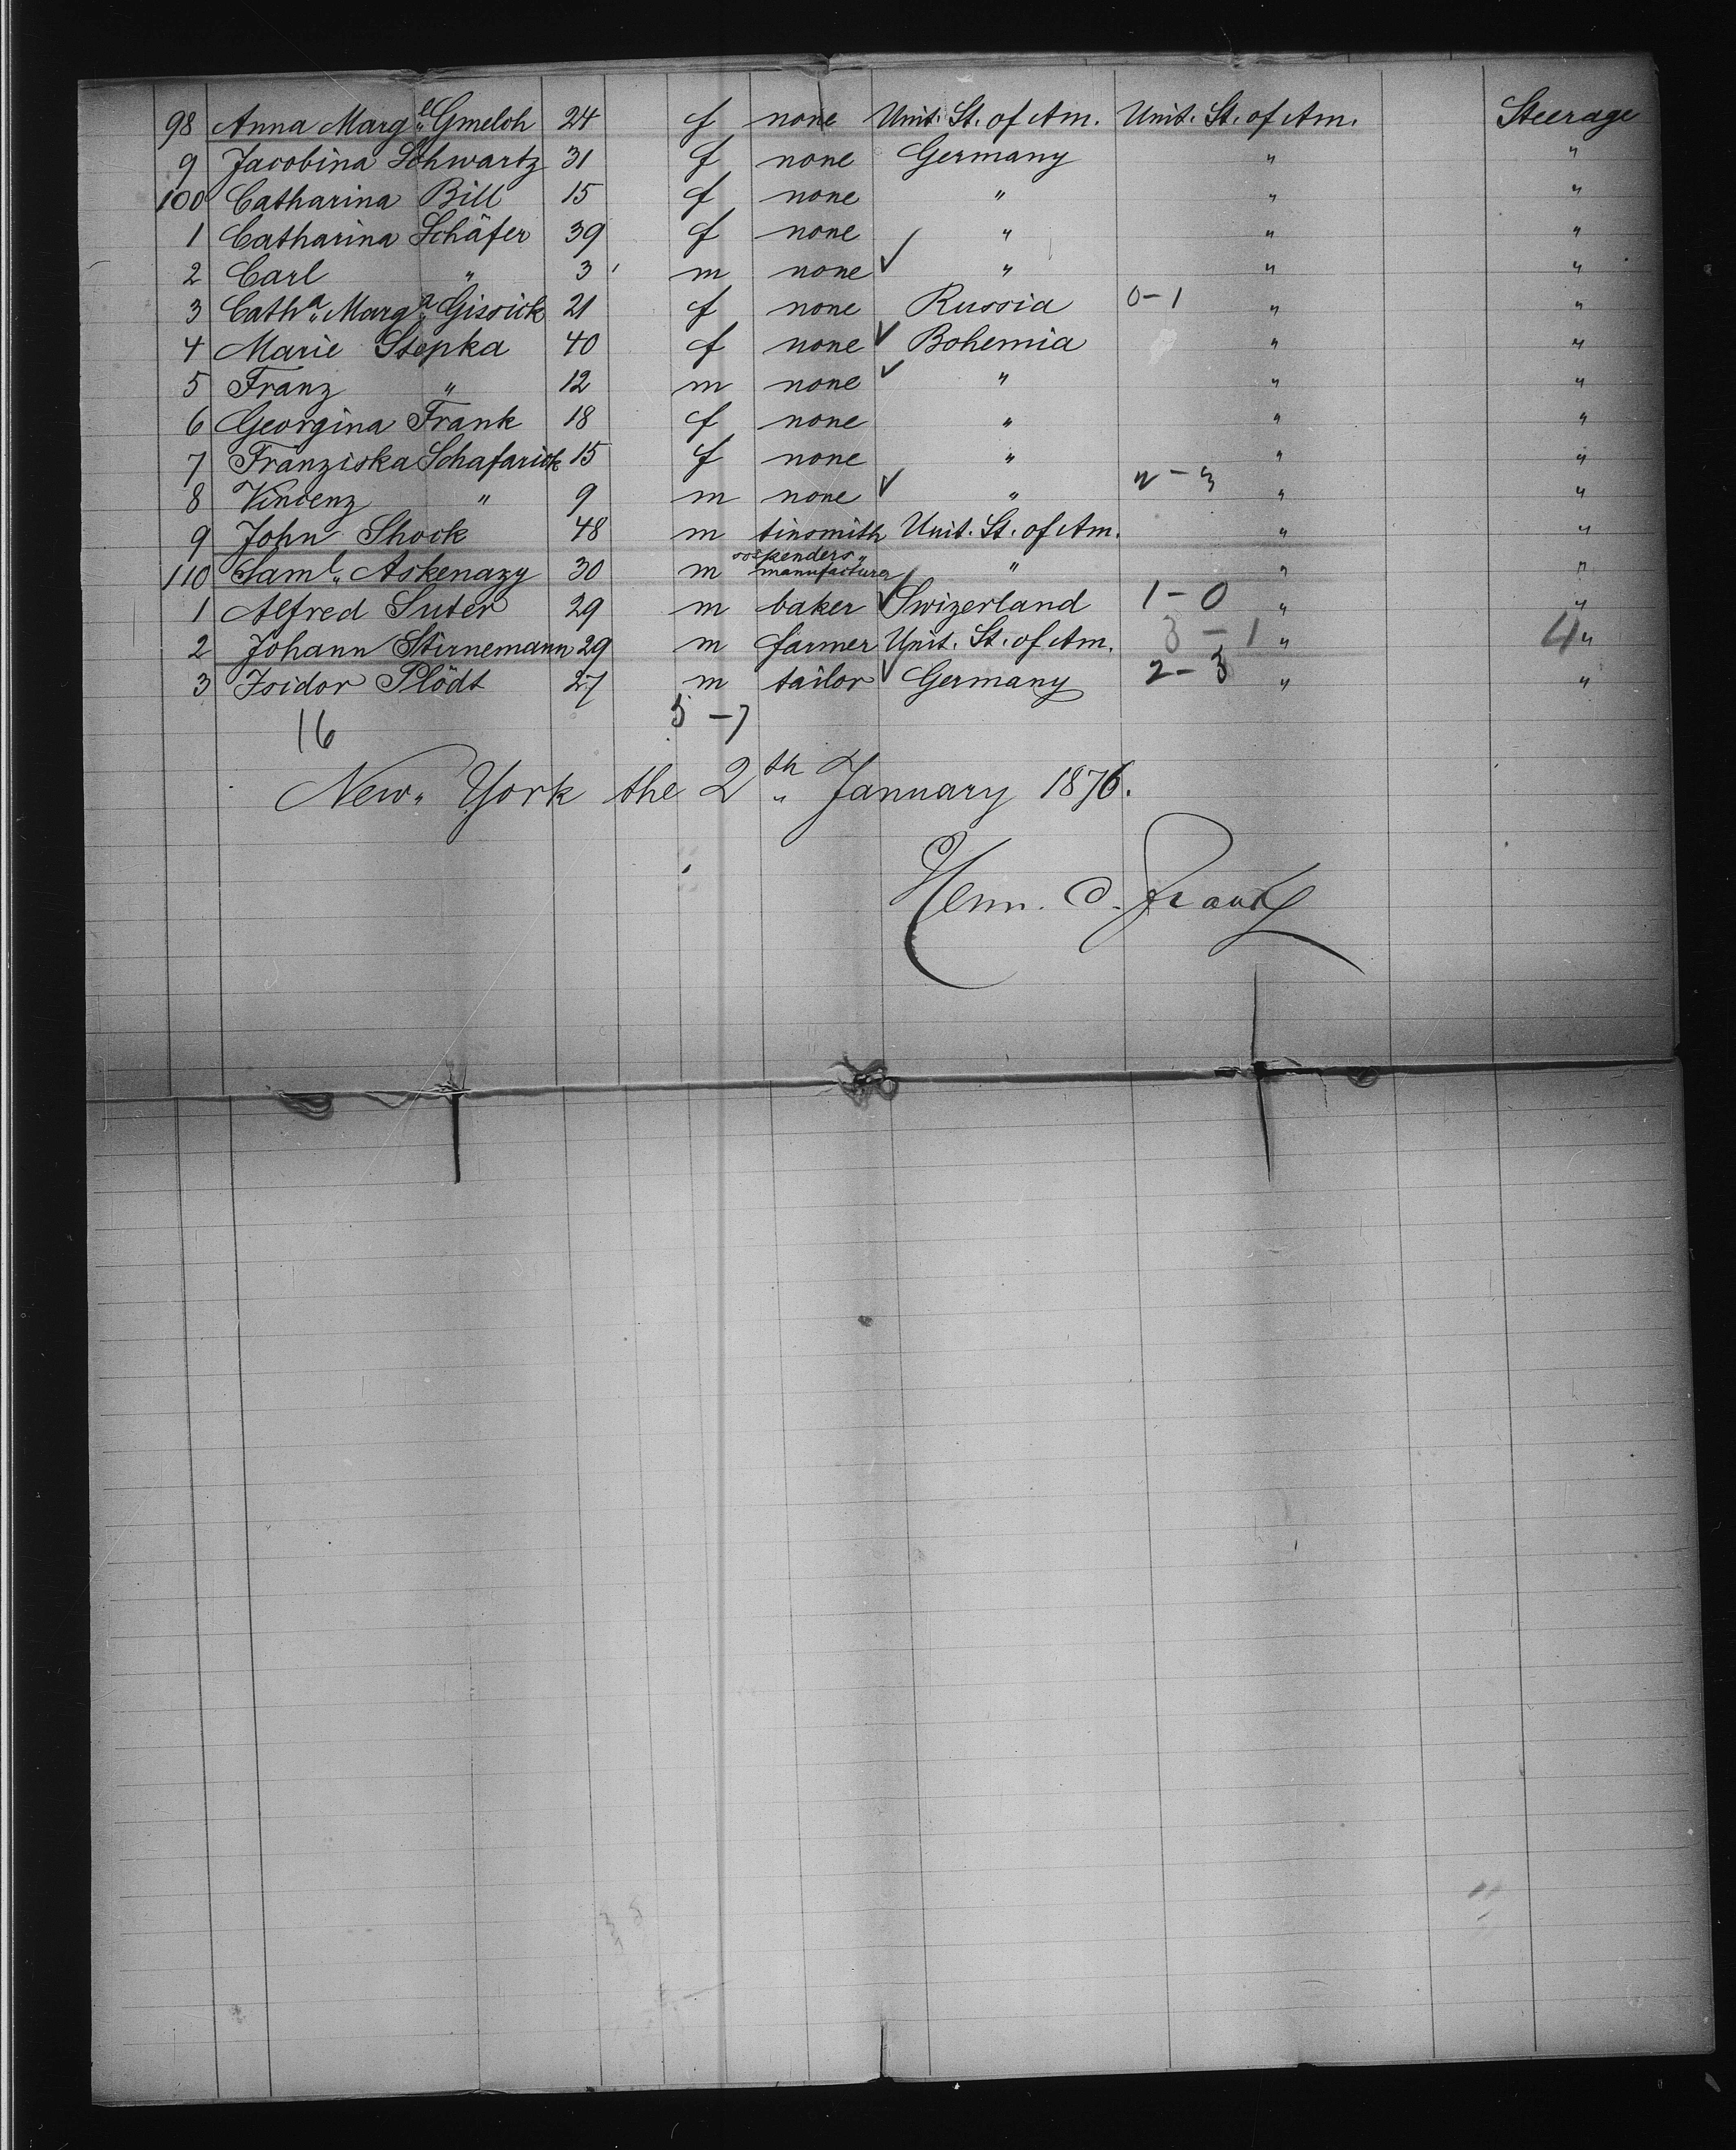 98 Anna Marg.el Gmelch 24 f none Unit. St. of Am. Unit. St. of Am. Steerage
9 Jacobina Schwartz 31 f none Germany " "
100 Catharina Bill 15 f none " " "
1 Catharina Schäfer 39 f none " " "
2 Carl " 3 m none ✓ " " "
3 Cath.a Marg.a Gissick 21 f none Russia 0-1 " "
4 Marie Stepka 40 f none ✓ Bohemia " "
5 Franz " 12 m none ✓ " " "
6 Georgina Frank 18 f none " " "
7 Franziska Schafarick 15 f none " " "
8 Vincenz " 9 m none ✓ " 2-3 " "
9 John Shock 48 m tinsmith Unit. St. of Am. " "
110 Saml. Askenazy 30 m suspenders manufacturer " " "
1 Alfred Suter 29 m baker ✓ Swizerland 1-0 " "
2 Johann Stirnemann 29 m farmer Unit. St. of Am. 3-1 " 4 "
3 Isidor Plödt 27 m tailor ✓ Germany 2-3 " "
16 5-7
New-York the 2th January 1876.